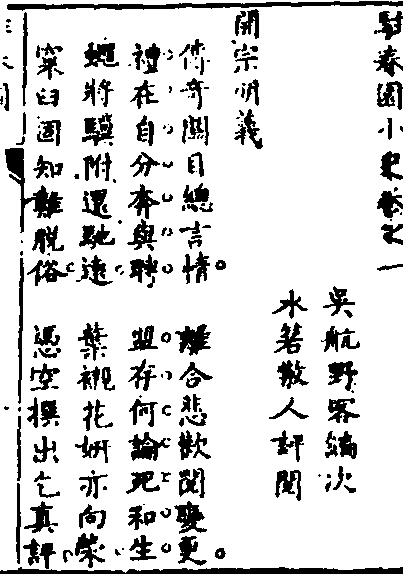 駐春園小史卷之一
吳航野客編次
水箬散人評閱
開宗明義
傳奇關目總言情。離合悲歡閱變更。
禮在自分奔與聘。盟存何論死和生。
蠅將驥附還馳遠。葉襯花妍亦向榮。
窠臼固知難脫俗。憑空撰出乞真評。